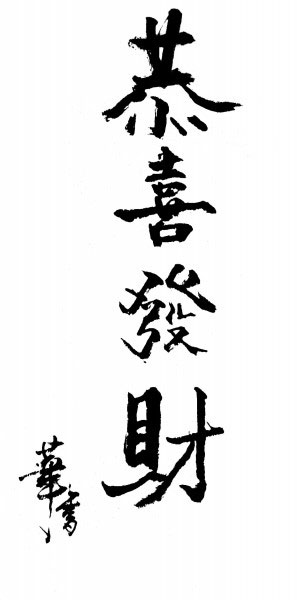 恭喜發財
華